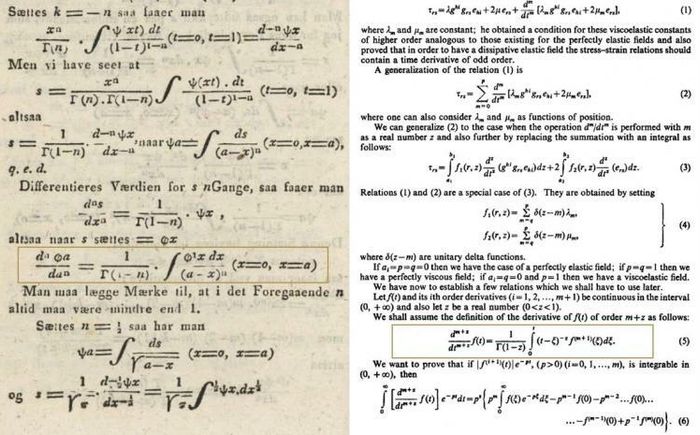 Sættes k = — n saa faaer man
xⁿ/Γ(n) . ∫ ψ(xt) dt/(1—t)¹⁻ⁿ (t=0, t=1) = d⁻ⁿψx/dx⁻ⁿ
Men vi have seet at
s = xⁿ/Γ(n).Γ(1—n) ∫ ψ(xt) . dt/(1—t)¹⁻ⁿ (t=0, t=1)
altsaa
s = 1/Γ(1—n) . d⁻ⁿψx/dx⁻ⁿ, naar ψa = ∫ ds/(a—x)ⁿ (x=0, x=a),
q. e. d.
Differentieres Værdien for s n Gange, saa faaer man
dⁿs/dxⁿ = 1/Γ(1—n) . ψx ,
altsaa naar s sættes = φx
dⁿ φa/daⁿ = 1/Γ(1—n) . ∫ φ'x dx/(a - x)ⁿ (x=0, x=a)
Man maa lægge Mærke til, at i det Foregaaende n
altid maa være mindre end 1.
Sættes n = ½ saa har man
ψa = ∫ ds/√a—x (x=0, x=a)
og s = 1/√π . d^-½ψx/dx^-½ = 1/√π ∫^½ψx.dx^½
τrs = λg^hi grs ehi + 2μers + d^m/dt^m [λm g^hi grs ehi + 2μm ers], (1)
where λm and μm are constant; he obtained a condition for these viscoelastic constants
of higher order analogous to those existing for the perfectly elastic fields and also
proved that in order to have a dissipative elastic field the stress–strain relations should
contain a time derivative of odd order.
A generalization of the relation (1) is
τrs = Σ_{m=0}^{p} d^m/dt^m [λm g^hi grs ehi + 2μm ers], (2)
where one can also consider λm and μm as functions of position.
We can generalize (2) to the case when the operation d^m/dt^m is performed with m
as a real number z and also further by replacing the summation with an integral as
follows:
τrs = ∫_{a1}^{b1} f1(r, z) d^z/dt^z (g^hi grs ehi)dz + 2∫_{a2}^{b2} f2(r, z) d^z/dt^z (ers)dz. (3)
Relations (1) and (2) are a special case of (3). They are obtained by setting
f1(r, z) = Σ_{m=q}^{p} δ(z—m) λm,
(4)
f2(r, z) = Σ_{m=q}^{p} δ(z—m) μm,
where δ(z—m) are unitary delta functions.
If ai=p=q=0 then we have the case of a perfectly elastic field; if p=q=1 then we
have a perfectly viscous field; if ai=q=0 and p=1 then we have a viscoelastic field.
We have now to establish a few relations which we shall have to use later.
Let f(t) and its ith order derivatives (i=1, 2, ..., m+1) be continuous in the interval
(0, +∞) and also let z be a real number (0<z<1).
We shall assume the definition of the derivative of f(t) of order m+z as follows:
d^{m+z}/dt^{m+z} f(t) = 1/Γ(1—z) ∫_0^t (t—ξ)^{-z} f^{(m+1)}(ξ)dξ. (5)
We want to prove that if |f^{(i+1)}(t)|e^{-pt}, (p>0) (i=0, 1, ..., m), is integrable in
(0, +∞), then
∫_0^∞ [d^{m+z}/dt^{m+z} f(t)] e^{-pt}dt = p^z {p^m ∫_0^∞ f(ξ)e^{-pξ}dξ—p^{m-1} f(0)—p^{m-2}...f(0)...
...—f^{(m-1)}(0)+p^{-1} f^{(m)}(0)}. (6)